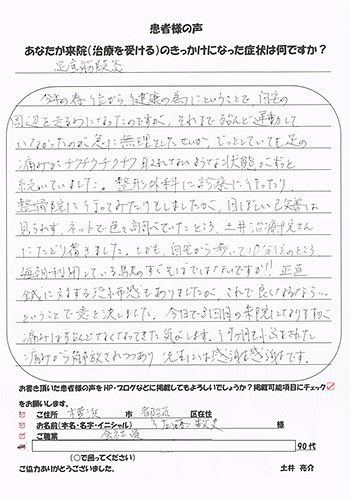 患者様の声
あなたが来院(治療を受ける)のきっかけになった症状は何ですか?
足底筋膜炎
今年の春位から健康の為にということで、自宅の
周辺を走るわになったのですが、それまでほとんど運動して
いなかったのが急に無理をしたせいか、じっとしていても足の
痛みがチクチクチクチク取れないような状態がずっと
続いていました。整形外科に診察に行ったり、
整骨院に行ってみたりしましたが、目ぼしい改善は
見られず、ネットで色々調べていたところ、土井治療院さん
にたどり着きました。しかも、自宅から歩いて10分位のところ
毎朝利用している駅のすぐそばではないですか!!正直
鍼に対する恐怖感もありましたが、これで良くなるなら…
ということで意を決しました。今日で3回目の来院になりますが
痛みはほとんどなくなってきた気がします。1ヶ月
痛みから解放されつつあり 先生には感謝感謝です。
お書き頂いた患者様の声をHP・ブログなどに掲載してもよろしいでしょうか?掲載可能項目にチェック
をお願いします。
ご住所 横浜 市 都筑 区在住
お名前(本名・名字・イニシャル) 様
ご職業 会社員
90代
(○で囲ってください)
ご協力ありがとうございました。 土井 亮介